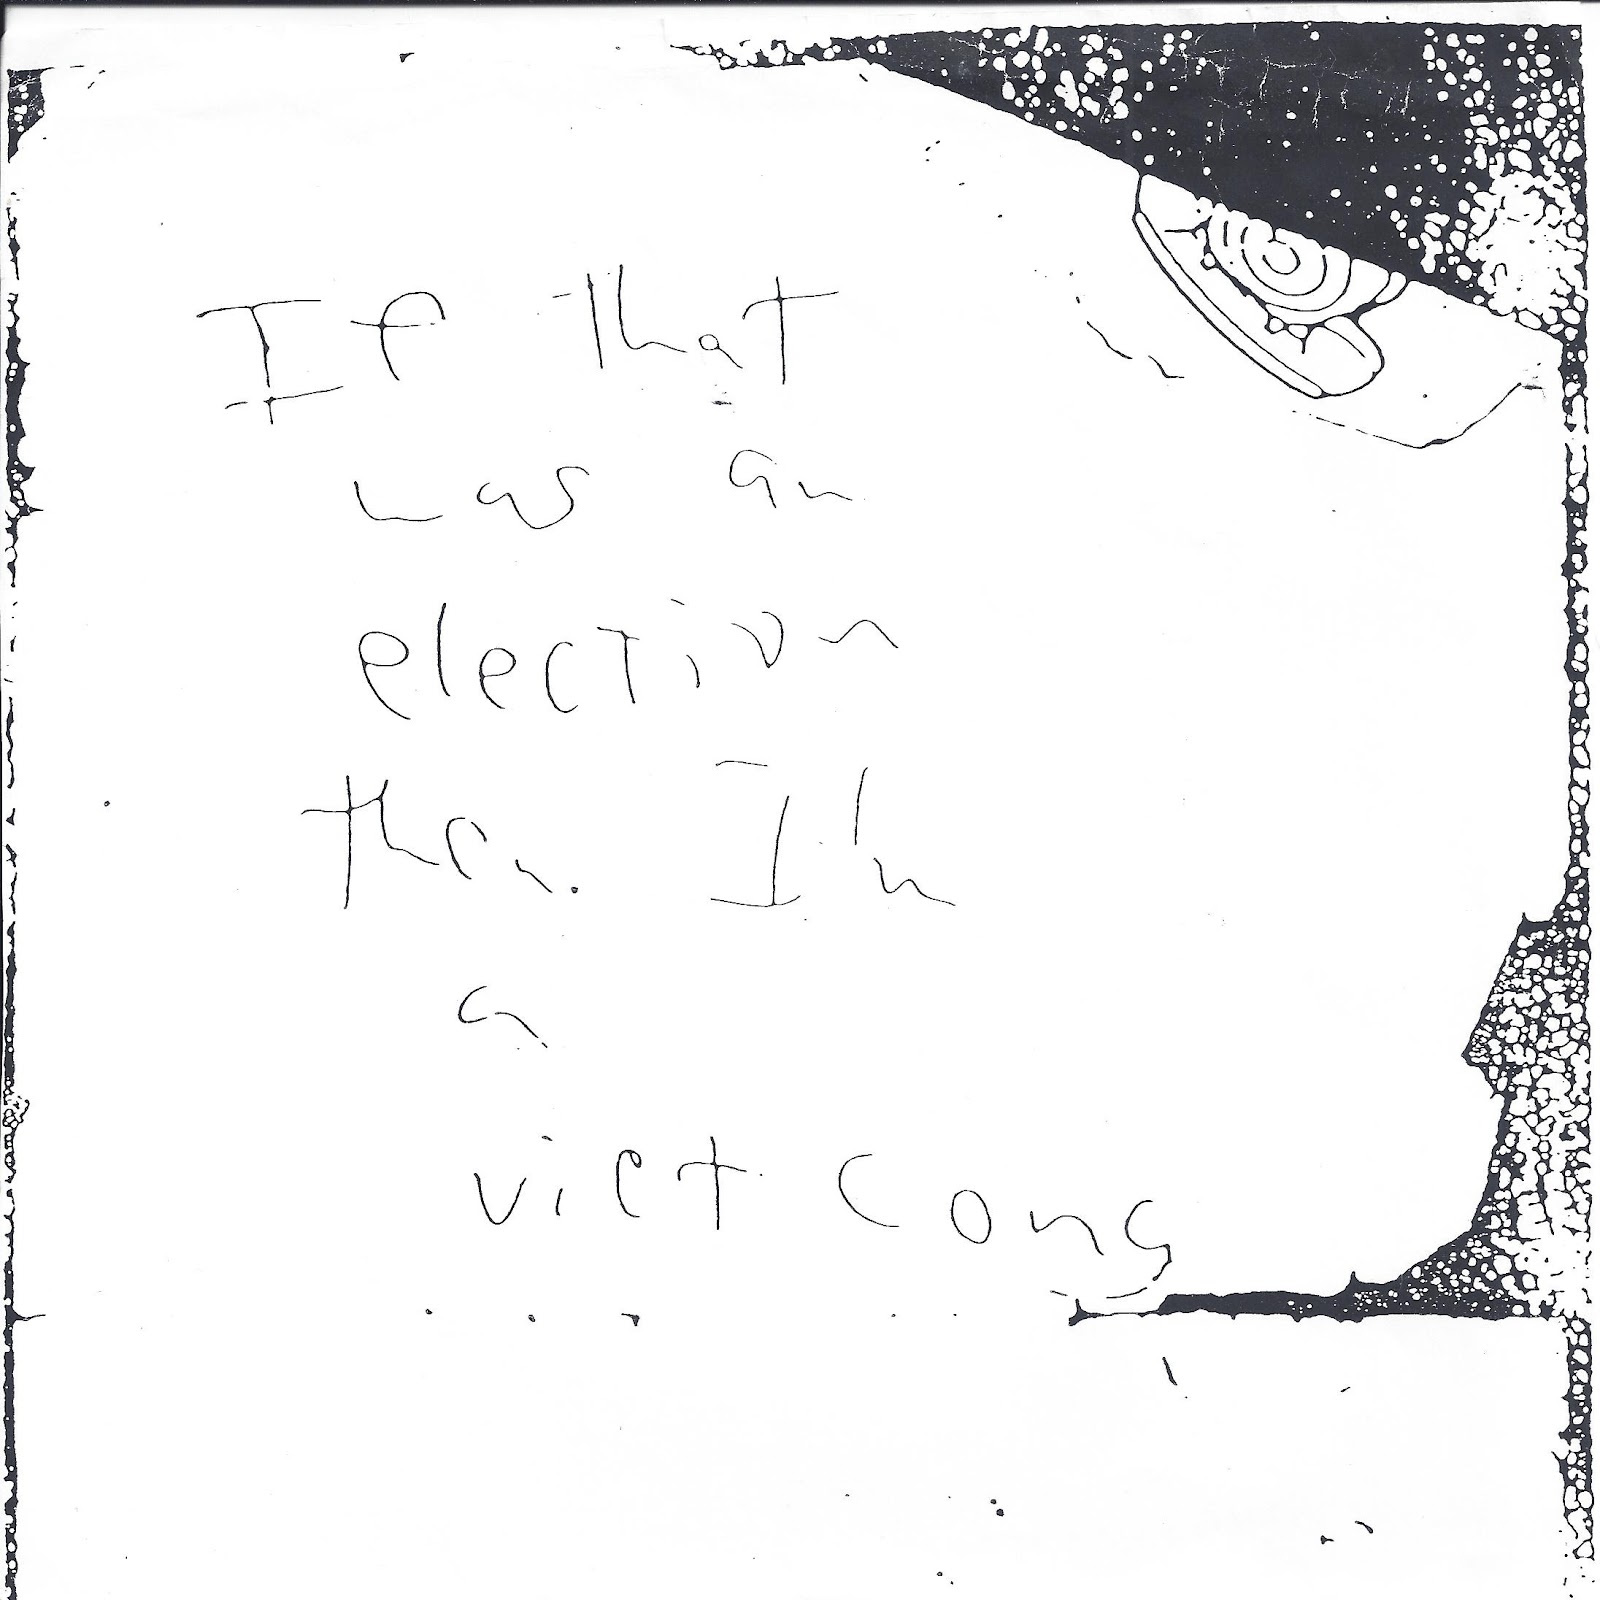 If that
was an
election
then. I'm
a
viet cong